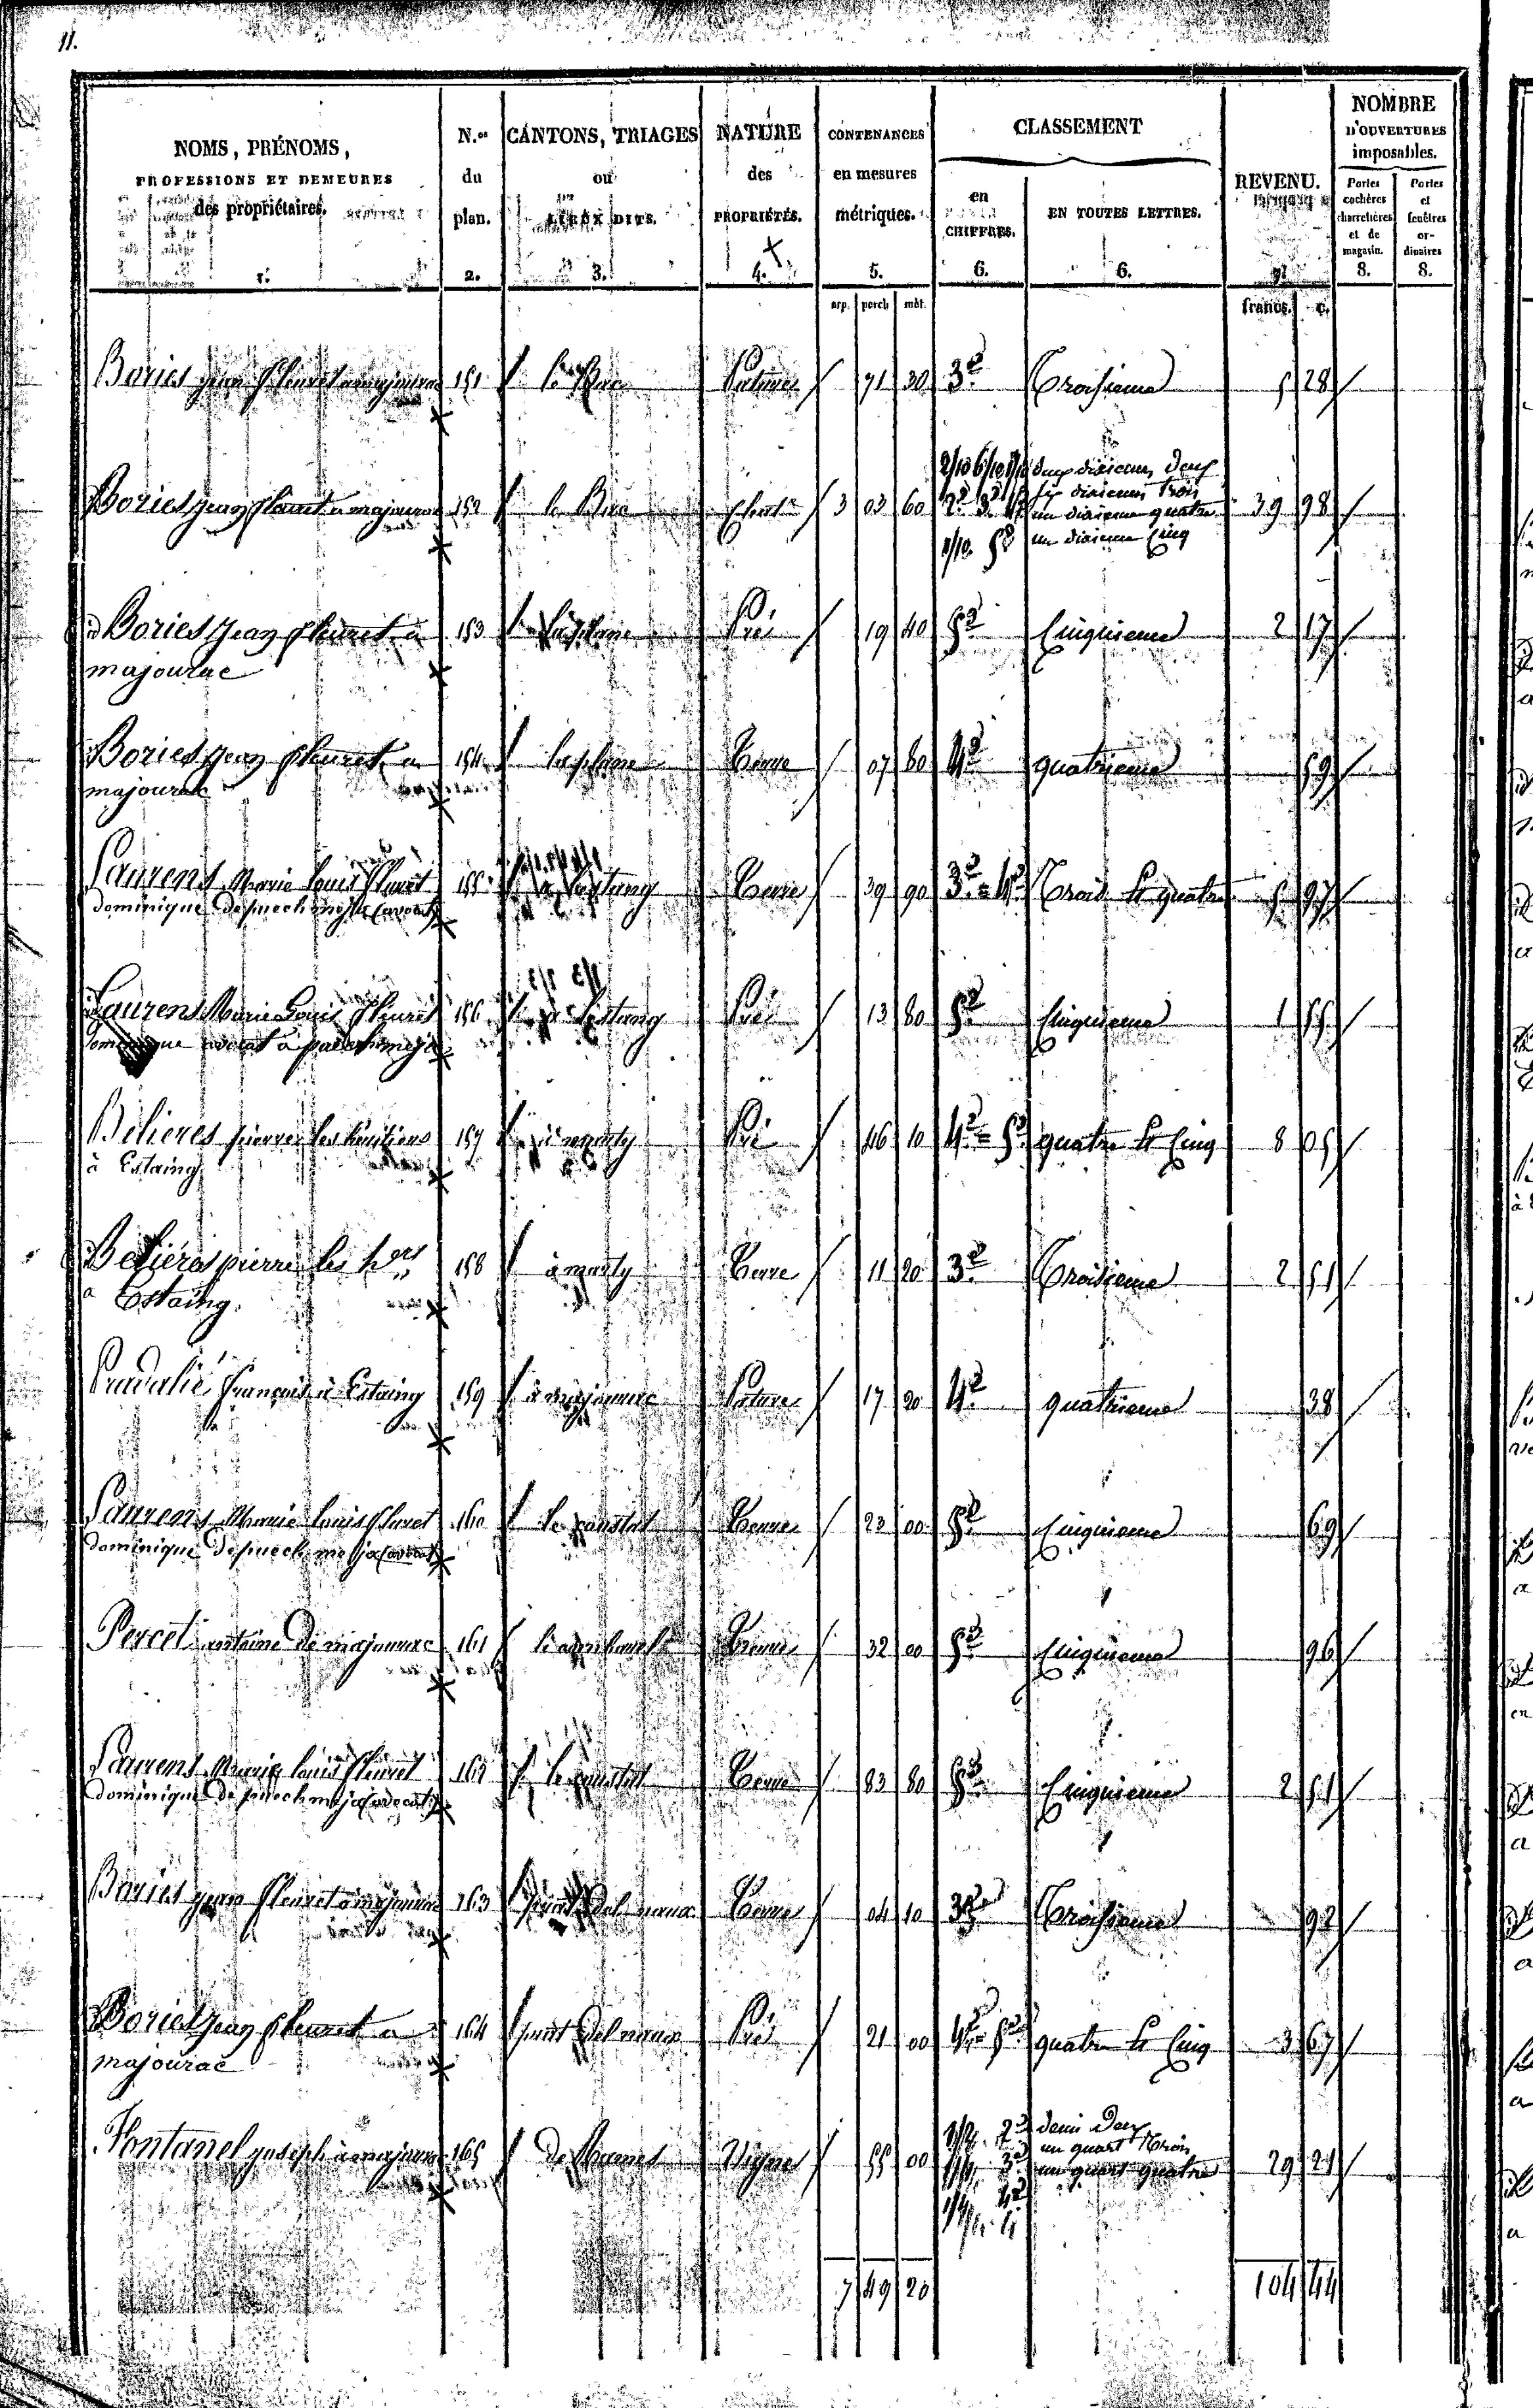 11.
NOMS, PRÉNOMS,
PROFESSIONS ET DEMEURES
des propriétaires.
1.
N.os
du
plan.
2.
CANTONS, TRIAGES
ou
LIEUX DITS.
3.
NATURE
des
PROPRIÉTÉS.
4.
CONTENANCES
en mesures
métriques.
5.
CLASSEMENT
en
CHIFFRES.
6.
EN TOUTES LETTRES.
6.
REVENU.
NOMBRE
D'OUVERTURES
imposables.
Portes
cochères
charretières
et de
magasin.
8.
Portes
et
fenêtres
or-
dinaires
8.
arp. perch mèt. francs. c.
Bories jean fleuret a majourac 151 le Buc Patures 71 30 3e Troisieme 5 28
2/10 6/10 1/10 deux dixiemes Deux
Bories jean fleuret a majourac 152 le Buc 3 03 60 2e 3e 4e six dixiemes trois 39 98
un dixieme quatre
1/10 5e un dixieme Cinq
id Bories jean fleuret a 153 laplane Pré 19 40 5e Cinquieme 2 17
majourac
Bories jean fleuret a 154 laplane Terre 07 80 4e quatrieme 59
majourac
Laurens Marie louis fleuret 155 a lestang Terre 39 90 3e = 4e Trois et quatre 5 97
dominique de puech meja (avocat)
Laurens Marie Louis fleuret 156 a lestang Pré 13 80 5e Cinquieme 1 55
Dominique avocat à puechmeja
Bélieres pierre les héritiers 157 a marty Pré 46 10 4e = 5e quatre et Cinq 8 05
à Estaing
Belieres pierre les hers 158 à marty Terre 11 20 3e Troisieme 2 51
a Estaing.
Pradalié françois à Estaing 159 à majourac Pature 17 20 4e quatrieme 38
Laurens Marie louis fleuret 160 le Terre 23 00 5e Cinquieme 69
dominique de puech meja (avocat)
Percet antoine de majourac 161 Terre 32 00 5e Cinquieme 96
Laurens Marie louis fleuret 162 le Terre 83 80 5e Cinquieme 2 51
dominique de puech meja (avocat)
Bories jean fleuret a majourac 163 del Terre 04 10 3e Troisieme 92
Bories jean fleuret a 164 del Pré 21 00 4e = 5e quatre et Cinq 3 67
majourac
1/2. 2e demi Deux
un quart Trois
Fontanel joseph a majourac 165 Vigne 55 00 1/4. 3e un quart quatre 29 21
1/4. 4e
7 49 20 104 44